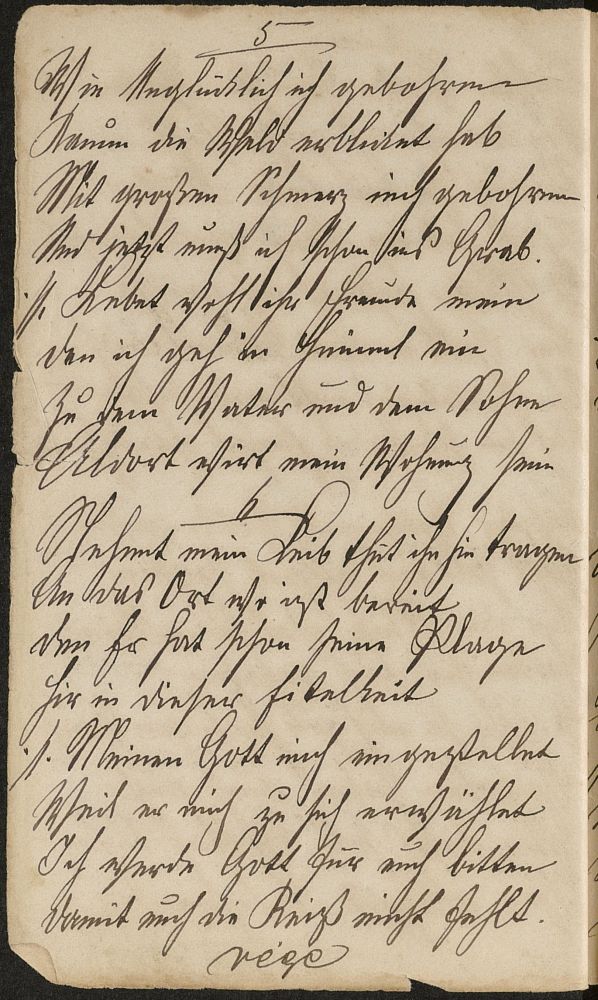 5
Wie Unglücklich ich gebohren
Kaum die Weld erblicket hab
Mit großen Schmerz mich gebohren
Und jetzt muß ich schon ins Grab.
./. Lebet wohl ihr Freunde mein
den ich geh in Himmel ein
Zu dem Vater und dem Sohne
Aldort wirt mein Wohnung sein
6
Nehmt mein Leib thut ihn hin tragen
An das Ort wo ist bereit
den Er hat schon seine Plage
hir in dieser Eitelkeit
./. Meinen Gott mich eingestellet
Weil er mich zu sich erwählet
Ich werde Gott für euch bitten
damit euch die nicht fehlt.
vége